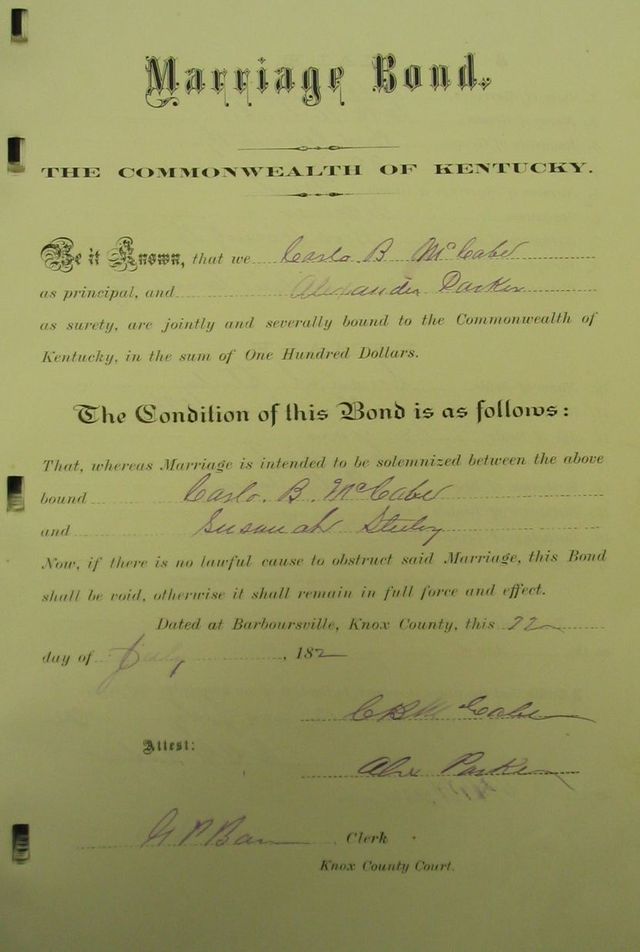 Marriage Bond.
THE COMMONWEALTH OF KENTUCKY.
Be it Known, that we Carlo B McCabe
as principal, and Alexander Parker
as surety, are jointly and severally bound to the Commonwealth of
Kentucky, in the sum of One Hundred Dollars.
The Condition of this Bond is as follows:
That, whereas Marriage is intended to be solemnized between the above
bound Carlo. B. McCabe
and Susanah
Now, if there is no lawful cause to obstruct said Marriage, this Bond
shall be void, otherwise it shall remain in full force and effect.
Dated at Barboursville, Knox County, this 22
day of July, 18
C B McCabe
Attest:
Alex Parker
Clerk
Knox County Court.